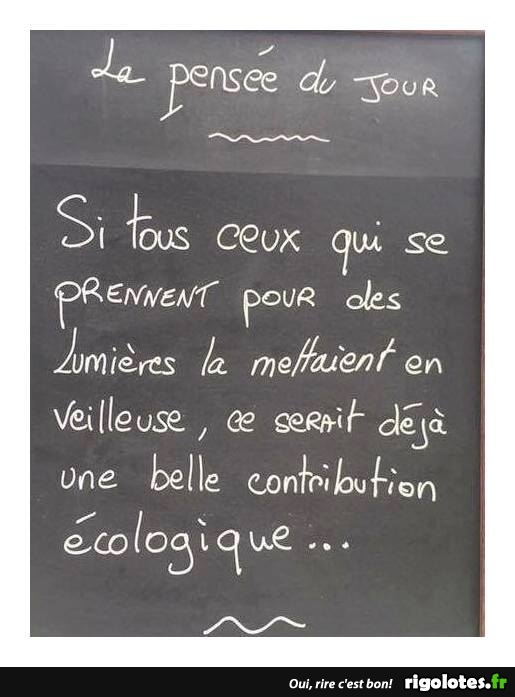 La pensée du JOUR
Si tous ceux qui se
PRENNENT pour des
Lumières la mettaient en
veilleuse, ce serait déjà
une belle contribution
écologique...
Oui, rire c'est bon! rigolotes.fr